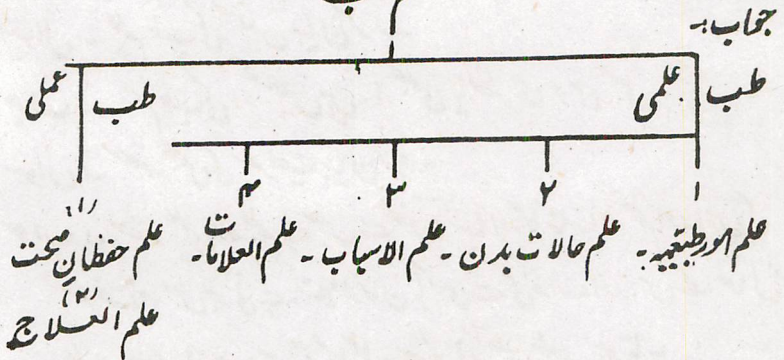 جواب:-
طب
طب علمی
طب عملی
۱ ۲ ۳ ۴
علم امور طبیعیہ - علم حالات بدن - علم الاسباب - علم العلامات -
(۱) علم حفظان صحت
(۲) علم العلاج